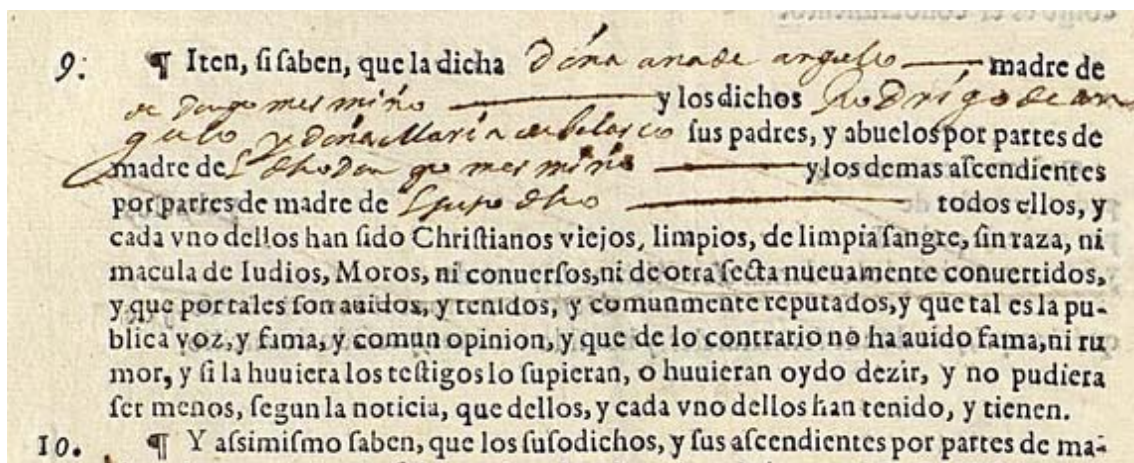 9. ¶ Iten, ſi ſaben, que la dicha Doña ana de angulo madre de
de Don gomes miño y los dichos Rodrigo de an
gulo y Doña Maria de belasco ſus padres, y abuelos por partes de
madre de l dho Don gomes miño y los demas aſcendientes
por partes de madre de dho todos ellos, y
cada vno dellos han ſido Chriſtianos viejos, limpios, de limpia ſangre, ſin raza, ni
macula de Iudios, Moros, ni conuerſos, ni de otra ſecta nueuamente conuertidos,
y que por tales ſon auidos, y tenidos, y comunmente reputados, y que tal es la pu-
blica voz, y fama, y comun opinion, y que de lo contrario no ha auido fama, ni ru
mor, y ſi la huuiera los teſtigos lo ſupieran, o huuieran oydo dezir, y no pudiera
ſer menos, ſegun la noticia, que dellos, y cada vno dellos han tenido, y tienen.
10. ¶ Y aſsimiſmo ſaben, que los ſuſodichos, y ſus aſcendientes por partes de ma-